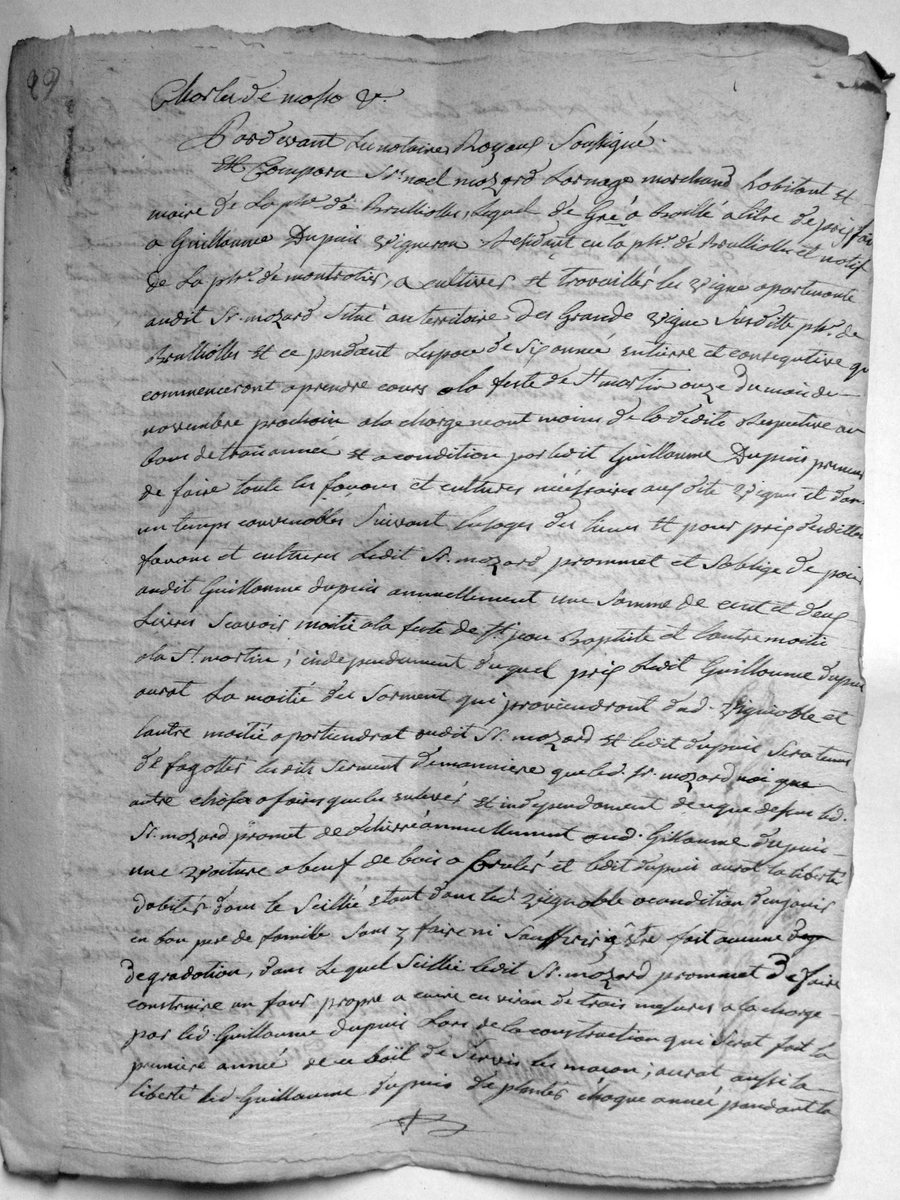 99
Charles de masso &.
Pardevant Le notaire Royaux Soussigné.
Et Compara Sr. noel mozard Larnage marchand habitant et
maire de La phe. de Brulliolles, Lequel de Gré a baillé a titre de prix fait
a Guillaume Dupuis vigneron Residant en la phe. de Brulliolles et natif
de La phe. de montrotier, a cultiver et travaillés les vigne apartenante
audit Sr. mozard Situé au territoire des Grande vigne Susditte phe. de
Brulliolles et ce pendant Lespace de Six année entierre et conseqütive qui
commenceront a prendre cours a la feste de St martin onze du mois de
novembre prochain a la charge neant moins de la dédite Respective au
bous de trois année et a condition par ledit Guillaume Dupuis preneur
de faire toute les façons et cultures nécéssaires aux dite vignes et dans
un temps convenables Suivant lusages des lieux et pour prix desdittes
façons et cultures Ledit Sr. mozard prommet et Soblige de paier
audit Guillaume dupuis annuellement une Somme de cent et deux
Livres Scavoir moitié a la feste de St jean Baptiste et Lautre moitié
a la St martin; independament duquel prix Ledit Guillaume dupuis
aurat La moitié des Sarment qui proviendront dud. vignioble et
Lautre moitié apartiendrat audit Sr. mozard et ledit dupuis Sera tenus
de fagotter lesdits Serment demanniere que led. Sr. mozard nai que
autre choses a faire que les enlever et independament de ce que dessus led.
Sr. mozard promet de Livré annuellement aud. Gillaume dupuis
une voiture a beuf de bois a brulér et ledit dupuis aurat la liberté
dabiter dans le Seillié etant dans led. vignoble a condition den jouir
en bon pere de famille Sans y faire ni Souffrir a être fait aucune
degradation, dans Lequel Seillié ledit Sr. mozard prommet De faire
construire un four propre a cuire en viron de trois mesures a la charge
par led. Guillaume dupuis Lors de la construction qui Serat fait la
premiere année de ce bail de Servir les macon; aurat aussi la
liberté led. Guillaume dupuis de plantés chaque année pendant la